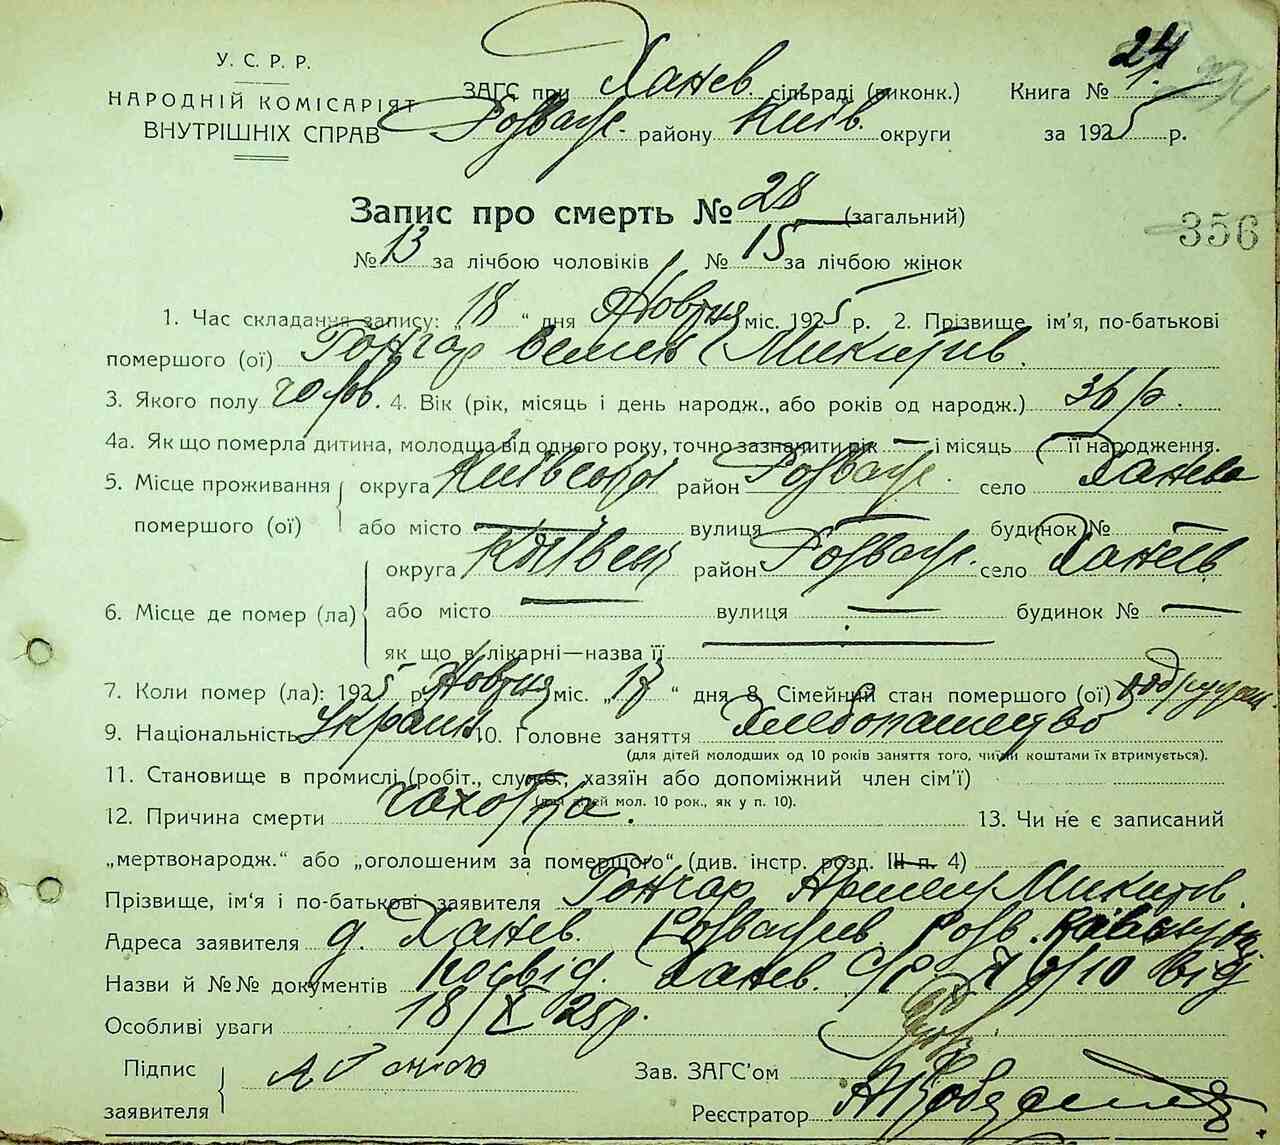 У. С. Р. Р.
НАРОДНІЙ КОМІСАРІЯТ
ВНУТРІШНІХ СПРАВ
ЗАГС при Ханев. сільраді (виконк.) Книга № 24
Розваж. району Київ. округи за 1925 р.
Запис про смерть № 28 (загальний)
356
№ 13 за лічбою чоловіків № 15 за лічбою жінок
1. Час складання запису: „18“ дня Жовтня міс. 1925 р. 2. Прізвище, ім'я, по-батькові
помершого (ої) Гончар Семен Микитів.
3. Якого полу чолов. 4. Вік (рік, місяць і день народж., або років од народж.) 36 р.
4а. Як що померла дитина, молодща від одного року, точно зазначити рік — і місяць її народження.
5. Місце проживання округа Київської район Розваж. село Ханева
помершого (ої) або місто — вулиця — будинок № —
округа Київськ район Розваж. село Ханев
6. Місце де помер (ла) або місто — вулиця — будинок № —
як що в лікарні—назва її —
7. Коли помер (ла): 1925 р. Жовтня міс. „17“ дня 8. Сімейний стан помершого (ої)
9. Національність Україн. 10. Головне заняття Хлебопашество
(для дітей молодших од 10 років заняття того, чиїми коштами їх втримується).
11. Становище в промислі (робіт., служб., хазяїн або допоміжний член сім'ї)
(для дітей мол. 10 рок., як у п. 10).
12. Причина смерти чахотка. 13. Чи не є записаний
„мертвонародж.“ або „оголошеним за помершого“ (див. інстр. розд. III п. 4)
Прізвище, ім'я і по-батькові заявителя Гончар Микитів.
Адреса заявителя д. Ханев. Розважев Розв. Київської
Назви й №№ документів посвід. Ханев. с/р від
18/X 25 р.
Особливі уваги
Підпис
заявителя
Зав. ЗАГС'ом
Реєстратор